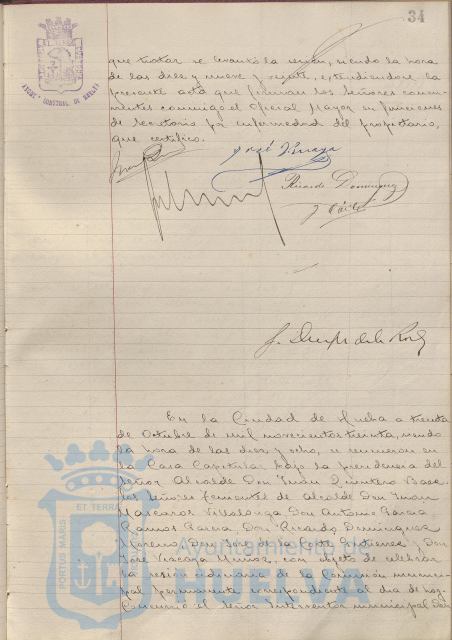 34
AYUNT. CONSTNAL. DE HUELVA
que tratar se levantó la sesión, siendo la hora
de las diez y nueve y veinte, extendiendose la
presente acta que firman los Señores concu-
rrentes conmigo el Oficial Mayor en funciones
de Secretario por enfermedad del propietario,
que certifico.
José Viscaya
Ricardo Dominguez
En la Ciudad de Huelva a treinta
de Octubre de mil novecientos treinta, siendo
la hora de las diez y ocho, se reunieron en
la Casa Capitular bajo la presidencia del
Señor Alcalde Don Juan Quintero Baez
los Señores Teniente de Alcalde Don Juan
Mascaros Villalonga, Don Antonio Garcia
Ramos Garcia, Don Ricardo Dominguez
Moreno, Don José de la Corte Gutierrez y Don
José Viscaya Muñoz, con objeto de celebrar
la sesión ordinaria de la Comisión munici-
pal permanente correspondiente al dia de hoy.
Concurrió el Señor Interventor municipal Don
PORTUS MARIS ET TERRAE
Ayuntamiento de
HUELVA